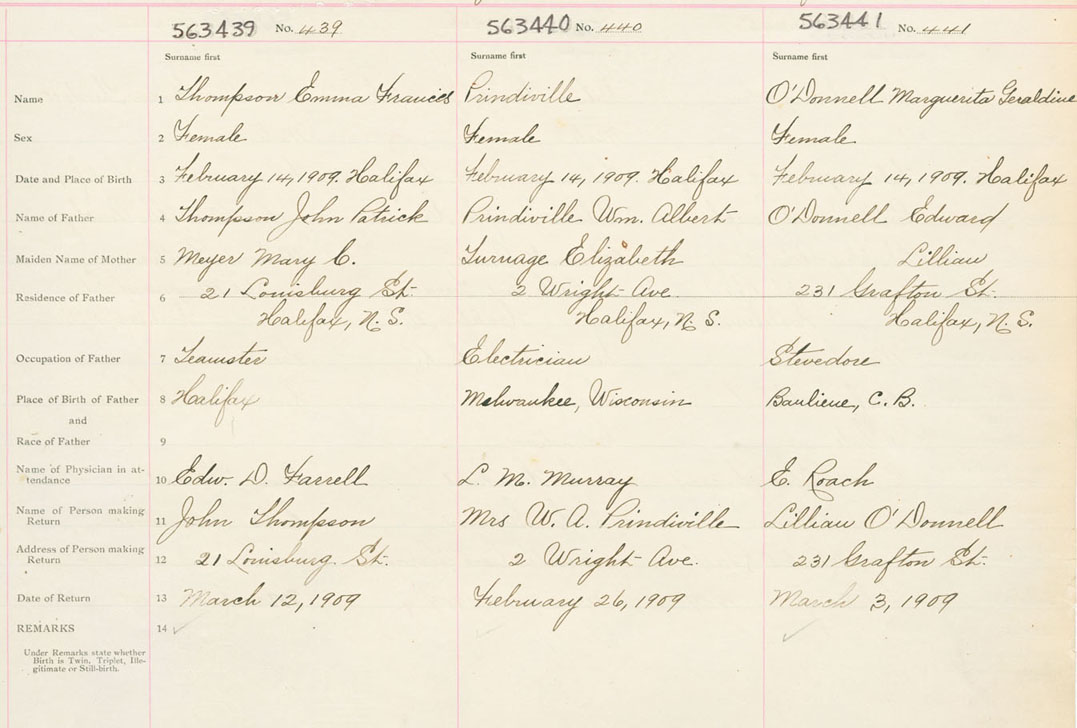 563439 No. 439 563440 No. 440 563441 No. 441
Surname first Surname first Surname first
Name 1 Thompson Emma Frances Prindiville O'Donnell Marguerita Geraldine
Sex 2 Female Female Female
Date and Place of Birth 3 February 14, 1909. Halifax February 14, 1909. Halifax February 14, 1909. Halifax
Name of Father 4 Thompson John Patrick Prindiville Wm. Albert O'Donnell Edward
Maiden Name of Mother 5 Meyer Mary C. Turnage Elizabeth Lillian
Residence of Father 6 21 Louisburg St. 2 Wright Ave. 231 Grafton St.
Halifax, N. S. Halifax, N. S. Halifax, N. S.
Occupation of Father 7 Teamster Electrician Stevedore
Place of Birth of Father 8 Halifax Melwaukee, Wisconsin Bauliene, C. B.
and
Race of Father 9
Name of Physician in at-
tendance 10 Edw. D. Farrell L. M. Murray E. Roach
Name of Person making
Return 11 John Thompson Mrs W. A. Prindiville Lillian O'Donnell
Address of Person making
Return 12 21 Louisburg. St. 2 Wright Ave. 231 Grafton St.
Date of Return 13 March 12, 1909 February 26, 1909 March 3, 1909
REMARKS 14
Under Remarks state whether
Birth is Twin, Triplet, Ille-
gitimate or Still-birth.